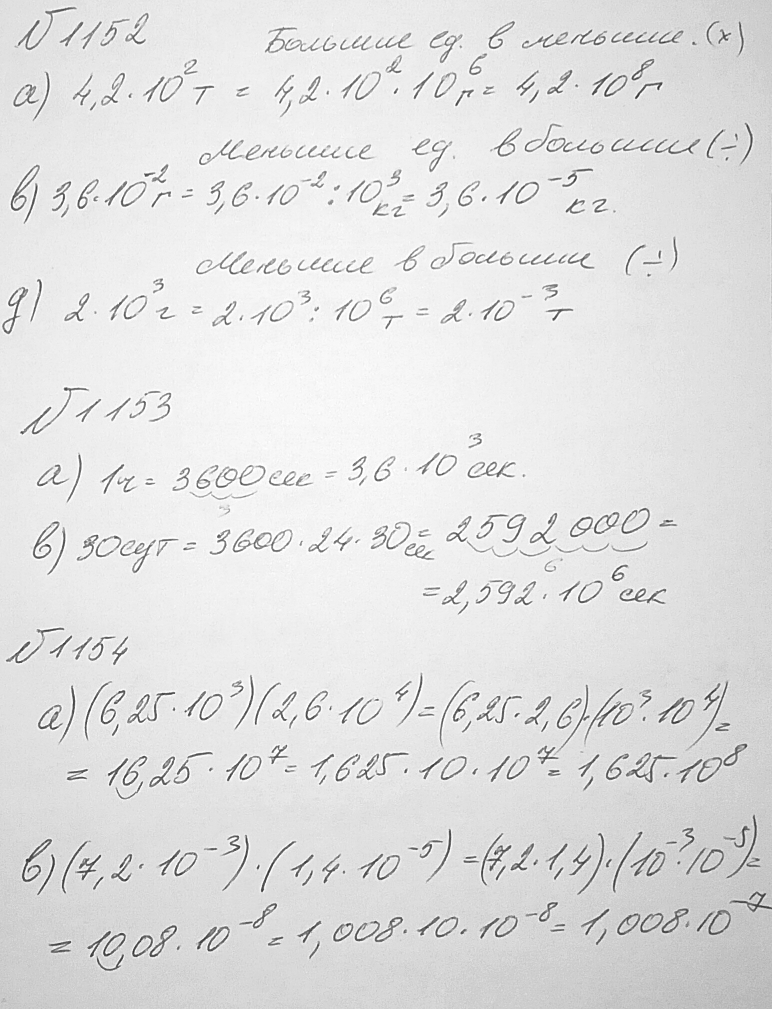 №1152 Большие ед. в меньшие. (х)
а) 4,2·10² т = 4,2·10²·10⁶ г = 4,2·10⁸ г
Меньшие ед. в большие (÷)
в) 3,6·10⁻² г = 3,6·10⁻² : 10³ кг = 3,6·10⁻⁵ кг.
Меньшие в большие (÷)
д) 2·10³ г = 2·10³ : 10⁶ т = 2·10⁻³ т
№1153
а) 1ч = 3600 сек = 3,6·10³ сек.
3
в) 30 сут = 3600·24·30 сек = 2592000 =
6
= 2,592·10⁶ сек
№1154
а) (6,25·10³)(2,6·10⁴) = (6,25·2,6)·(10³·10⁴) =
= 16,25·10⁷ = 1,625·10·10⁷ = 1,625·10⁸
в) (7,2·10⁻³)·(1,4·10⁻⁵) = (7,2·1,4)·(10⁻³·10⁻⁵) =
= 10,08·10⁻⁸ = 1,008·10·10⁻⁸ = 1,008·10⁻⁷